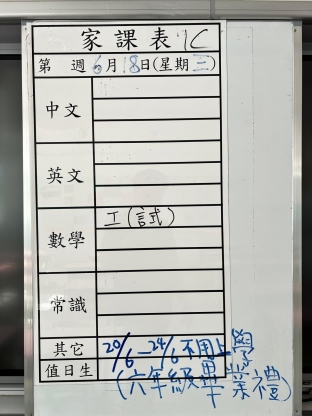 家課表 1C
第 週 6月18日(星期三)
中文
英文
數學 工(試)
常識
其它 20/6—24/6不用上學
值日生 (六年級畢業禮)